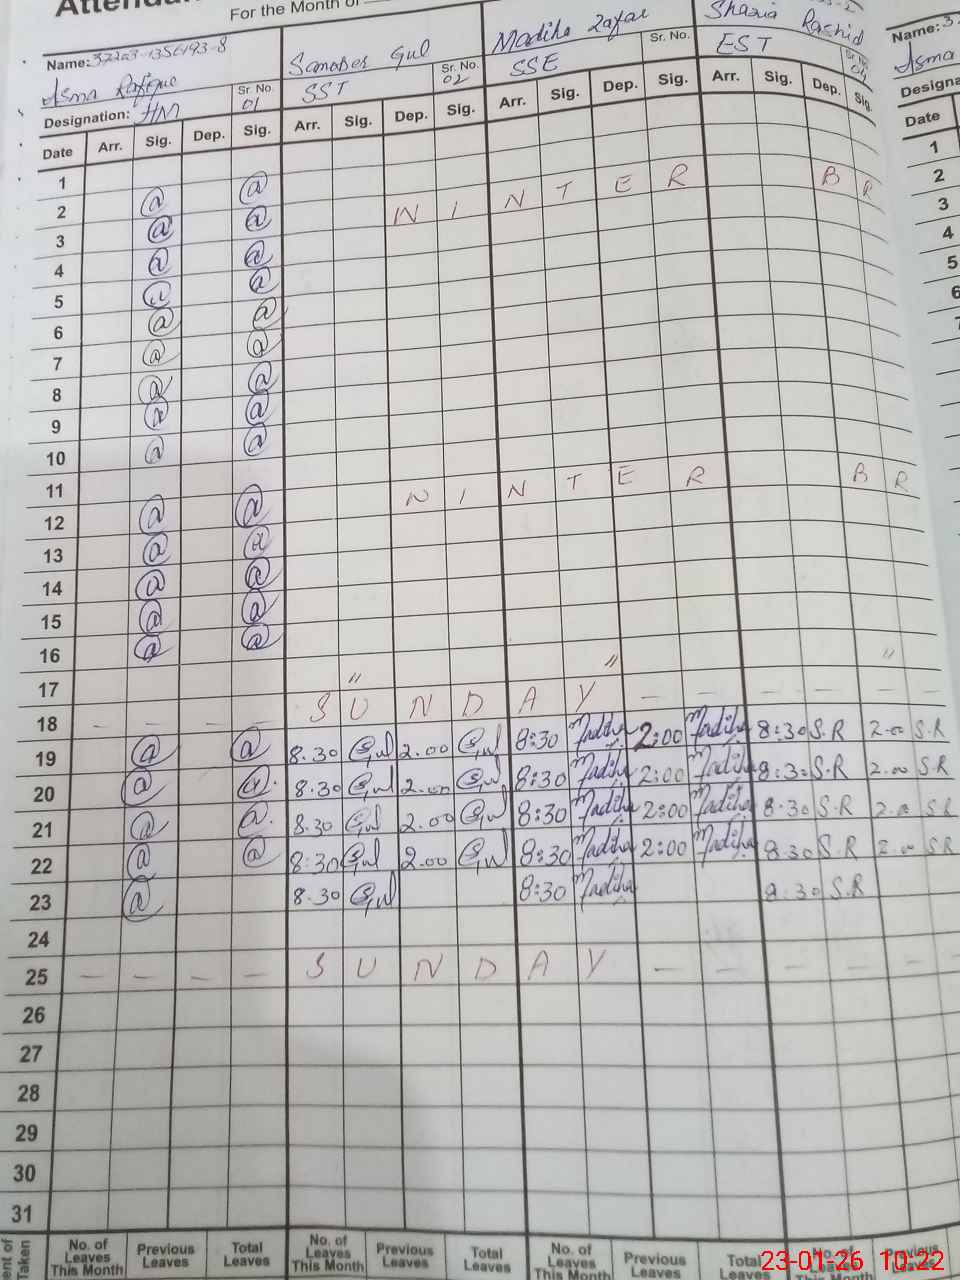 Attendan
For the Month of
Name: 37203-1356193-8
Asma Rafique
Sr. No.
01
Designation: HM
Samaber Gul
SST
Sr. No.
02
Madiha Zafar
SSE
Sr. No.
Shazia Rashid
EST
Sr. No.
04
Name: 3
Asma
Designa
Date Arr. Sig. Dep. Sig. Arr. Sig. Dep. Sig. Arr. Sig. Dep. Sig. Arr. Sig. Dep. Sig.
Date
1 1
2 W I N T E R B R 2
3 3
4 4
5 5
6 6
7 7
8
9
10
11 W I N T E R B R
12
13
14
15
16
17 " " "
18 — — — — S U N D A Y — — — — — —
19 @ @ 8.30 Gul 2.00 Gul 8:30 Madiha 2:00 Madiha 8:30 S.R 2.00 S.R
20 @ @ 8.30 Gul 2.00 Gul 8:30 Madiha 2:00 Madiha 8:30 S.R 2.00 S.R
21 @ @ 8.30 Gul 2.00 Gul 8:30 Madiha 2:00 Madiha 8.30 S.R 2.00 S.R
22 @ @ 8:30 Gul 2.00 Gul 8:30 Madiha 2:00 Madiha 8:30 S.R 2.00 S.R
23 @ 8.30 Gul 8:30 Madiha 8:30 S.R
24
25 — — — — S U N D A Y — — — — — —
26
27
28
29
30
31
ent of Taken
No. of Leaves This Month Previous Leaves Total Leaves No. of Leaves This Month Previous Leaves Total Leaves No. of Leaves This Month Previous Leaves Total Leaves No. of Leaves This Month Previous Leaves
23-01-26 10:22